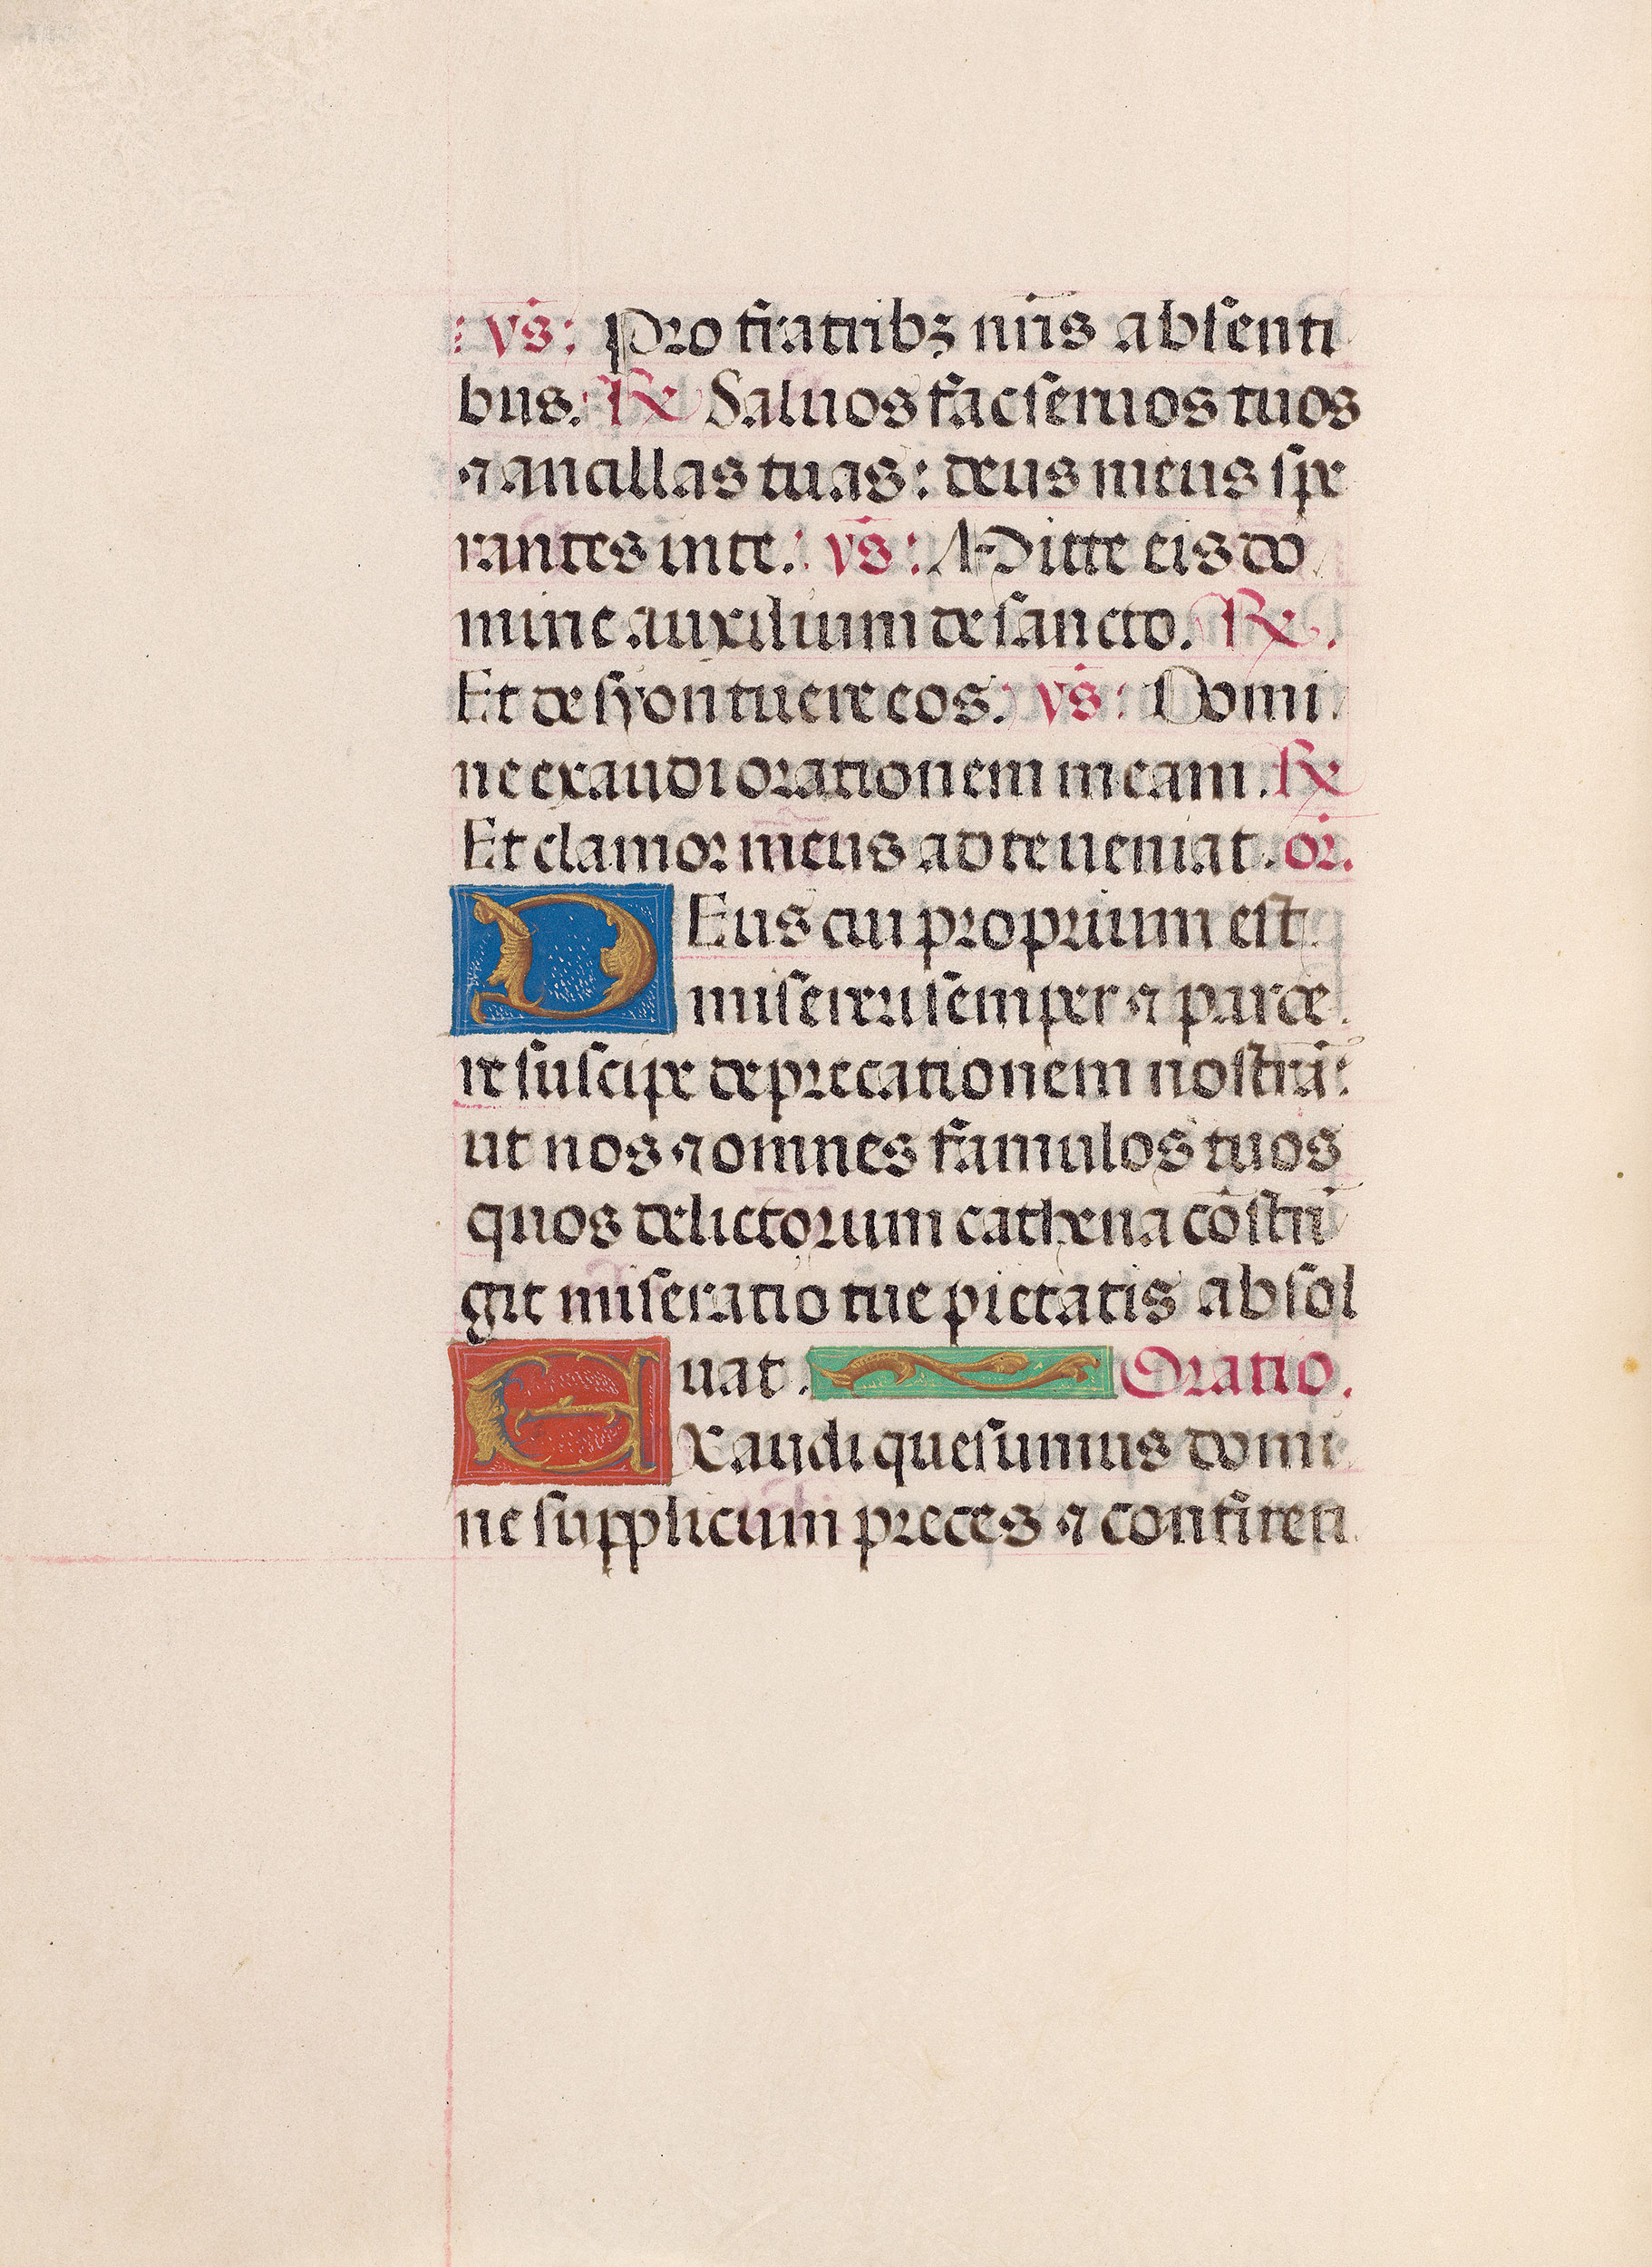 : vs̄ : Pro fratribꝫ nr̄is absenti
bus. ℟ Saluos fac seruos tuos
⁊ ancillas tuas: deus meus spe
rantes in te. vs̄ : Mitte eis do
mine auxilium de sancto. ℟.
Et de syon tuere eos. vs̄ : Domi
ne exaudi orationem meam. ℟
Et clamor meus ad te ueniat. or̄.
DEus cui proprium est
misereri semper ⁊ parce
re suscipe deprecationem nostrā:
ut nos ⁊ omnes famulos tuos
quos delictorum cathena cōstrī
git miseratio tue pietatis absol
uat. Oratio.
EXaudi quesumus domi
ne supplicum preces ⁊ confiten